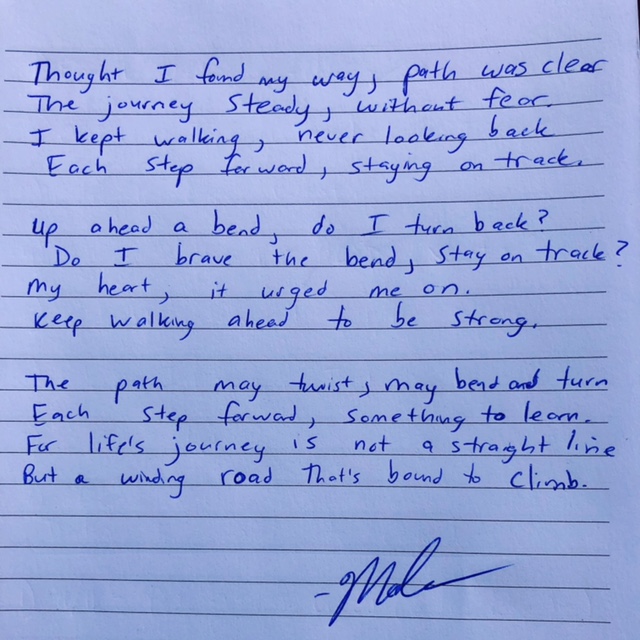 Thought I found my way, path was clear
The journey steady, without fear.
I kept walking, never looking back
Each step forward, staying on track.
Up ahead a bend, do I turn back?
Do I brave the bend, stay on track?
My heart, it urged me on.
Keep walking ahead to be strong.
The path may twist, may bend and turn
Each step forward, something to learn.
For life's journey is not a straight line
But a winding road that's bound to climb.